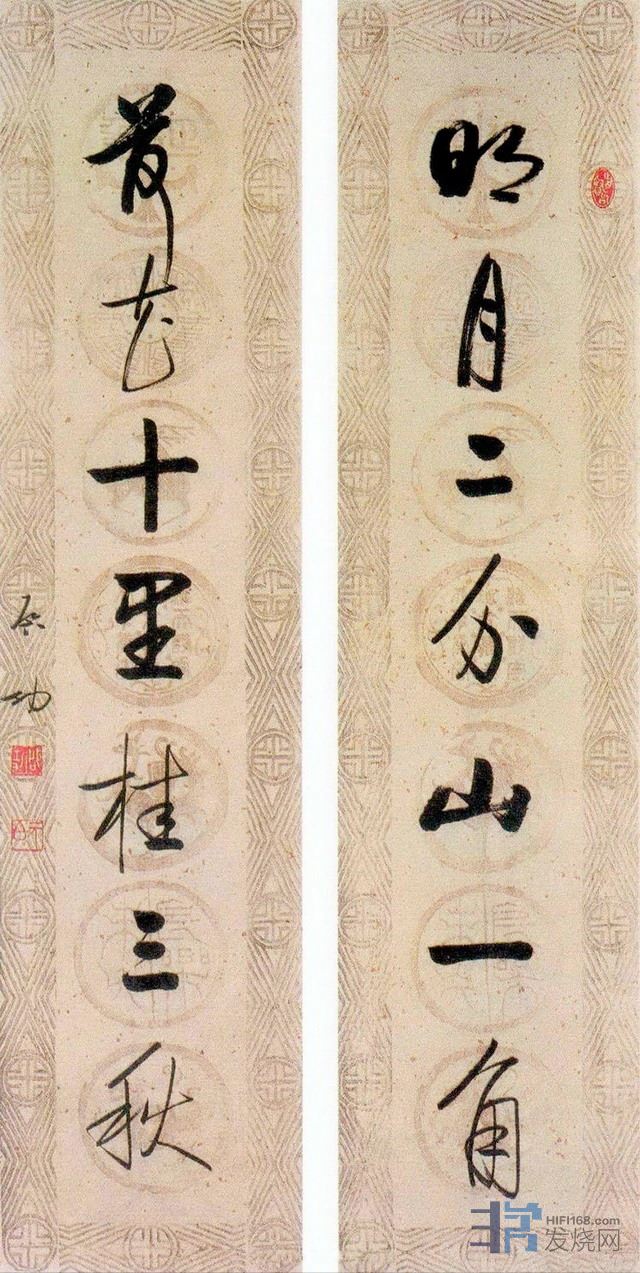 明月二分山一角
荷花十里桂三秋
启功
HIFI168.com
发烧网